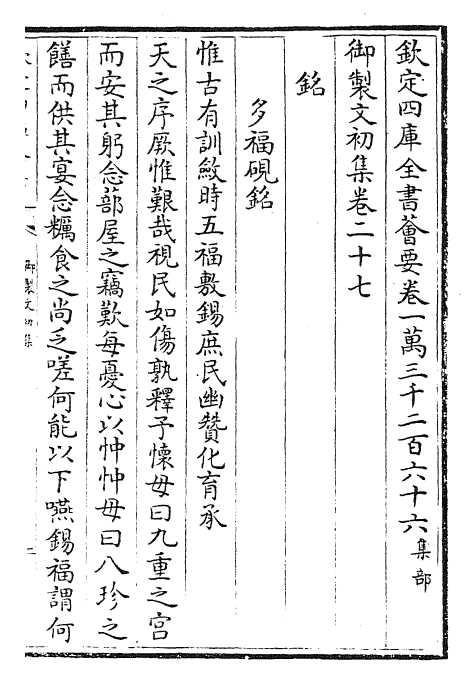 欽定四庫全書薈要卷一萬三千二百六十六集部
御製文初集卷二十七
銘
多福硯銘
惟古有訓斂時五福敷錫庶民幽贊化育承
天之序厥惟艱哉視民如傷孰釋予懷毋曰九重之宫
而安其躬念蔀屋之竊歎每憂心以忡忡毋曰八珍之
饍而供其宴念糲食之尚乏嗟何能以下嚥錫福謂何
御製文初集